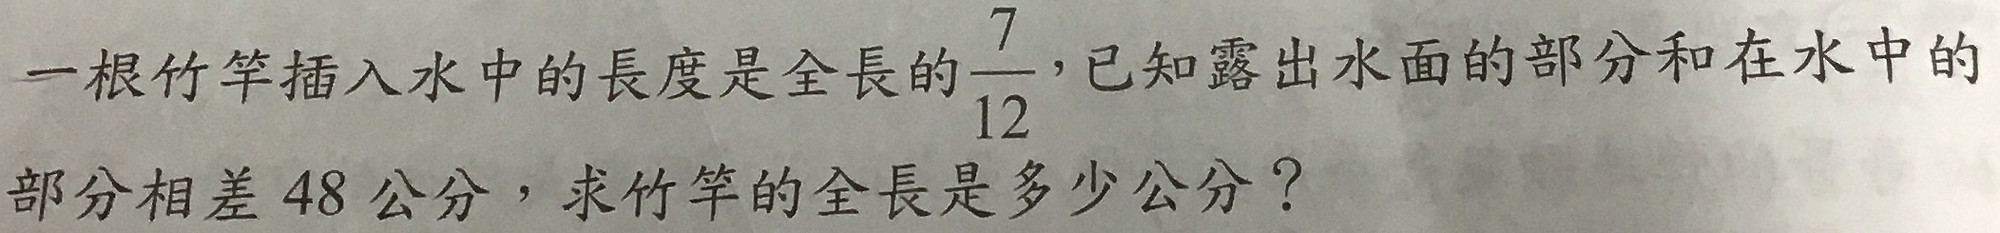 一根竹竿插入水中的長度是全長的7/12，已知露出水面的部分和在水中的
部分相差 48 公分，求竹竿的全長是多少公分？